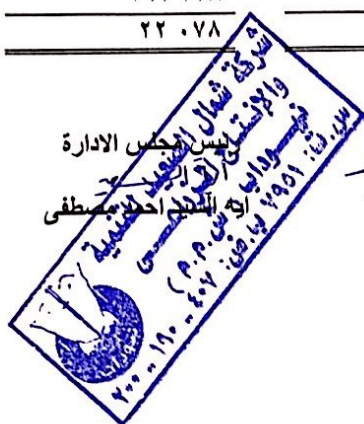 ٢٢ ٠٧٨
رئيس مجلس الادارة
ايه السيد احمد مصطفى
شركة شمال الصعيد للتنمية
والإنتاج الزراعى
(ش.م.م)
س.ت: ٧٩٥١ ب.ض:
٢٠٠ - ١٩٠ - ٤٠٧